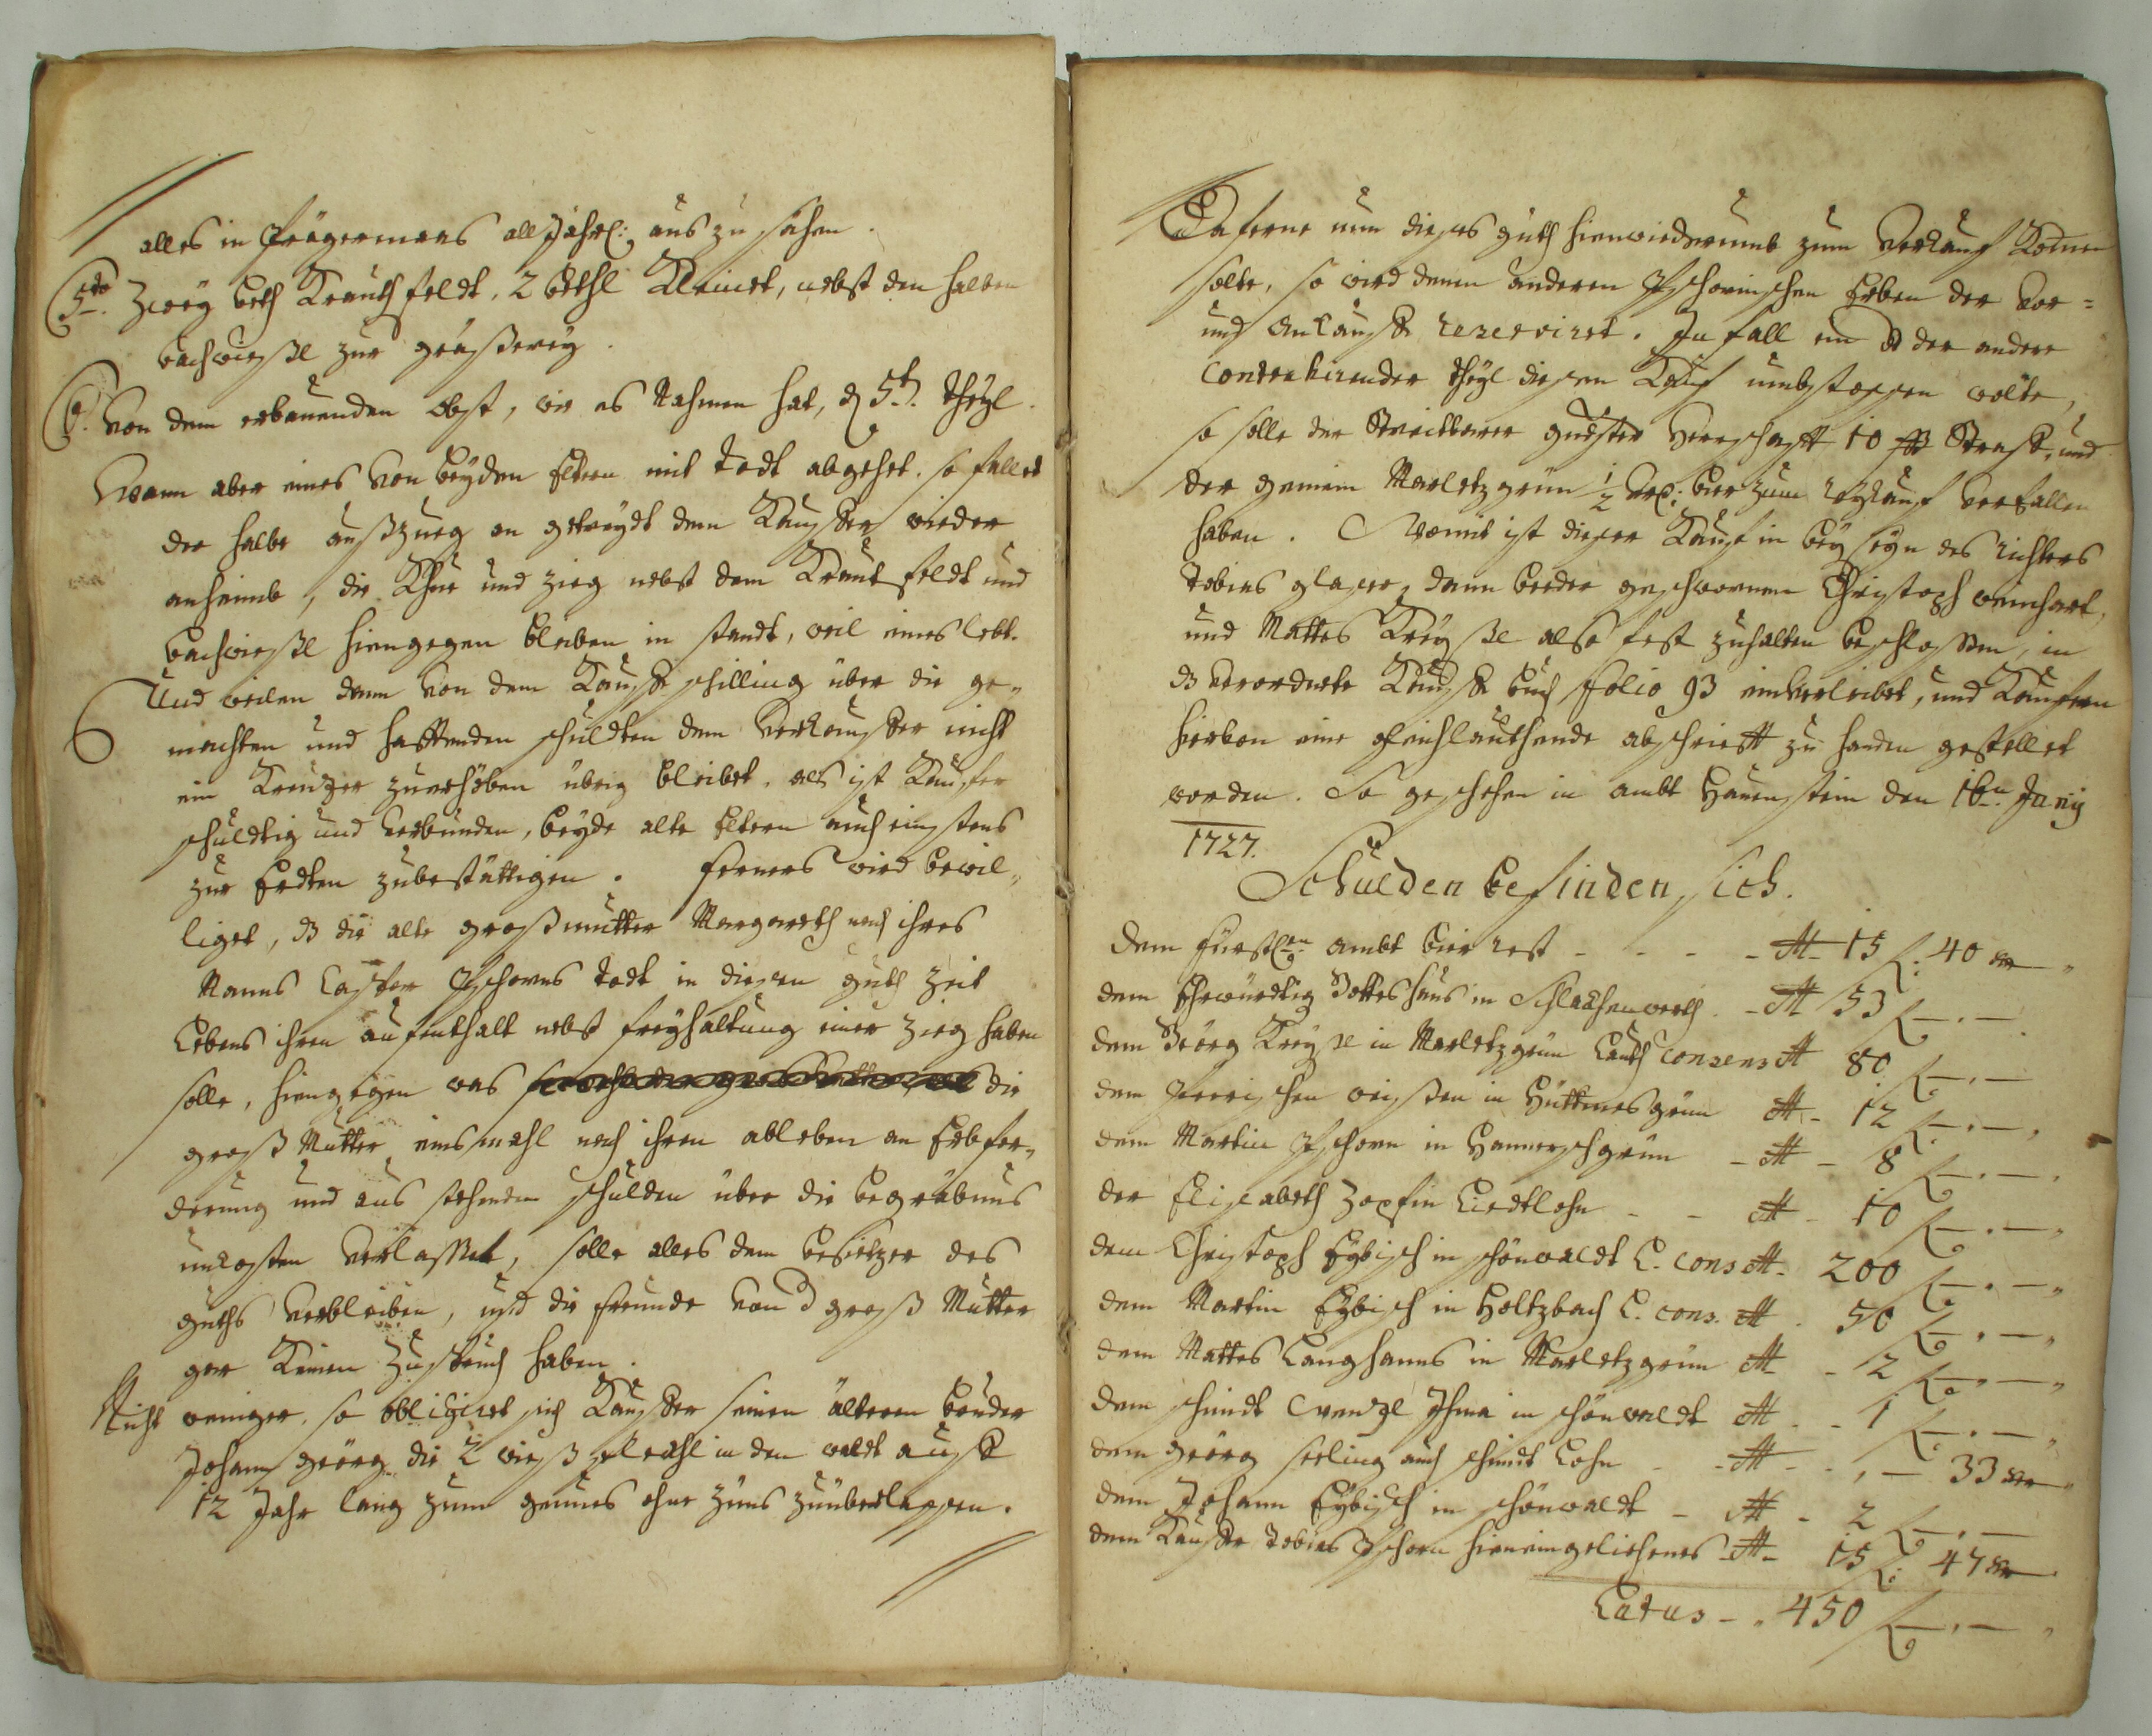 alles in Prägermaas alljährl: aus zu sähen.
5to. Zweÿ beth Krauthfeldt, 2 bethl Kleinet, nebst den halben
bachwießl zur graßereÿ.
6. Von dem erbauenden obst, wie es Nahmen hat, d 5te. theÿl.
Wann aber eines von beÿden Eltern mit todt abgehet. so fallet
der halbe außzueg an getreÿdt dem Kauffer wieder
anheimb, die Khue und zieg nebst dem Krautfeldt und
bachwießl hiengegen bleiben in standt, weil eines lebt.
Und weilen dann von dem Kauffschilling über die ge-
machten und hafftenden schuldten dem verkauffer nicht
ein Kreuzer zuerheben übrig bleibet, als ist Kauffer
schuldtig und verbunden, beÿde alte Eltern auch einstens
zur Erdten zubestättigen. ferners wird bewil-
liget, dz die alte großmutter Margareth nach ihres
Manns Casper Pschorns todt in diesen guth zeit
Lebens ihren aufenthalt nebst freÿhaltung einer zieg haben
solle, hiengegen was die
groß Mutter einsmahl nach ihren ableben an Erbfor-
derung und aus stehenden schulden über die begräbnus
unkosten verlasset, solle alles dem besietzer des
guths verbleiben, und die freunde von d groß Mutter
gar Keinen Zuspruch haben.
Nicht weniger, so obligiret sich Kauffer seinen ältern bruder
Johann Geörg die 2 wießfleckhl in den waldt auff
12 Jahr lang zum genus ohne Züns zuüberlassen.
Daferne nun dieses guth hienwiederumb zum verkauf Komen
solte, so wird denen anderen Pschornischen Erben der vor=
und Ankauff reserviret. In fall ein od der andere
Contrahirender theÿl diesen Kauf umbstossen wolte,
so solle der Streitbarer gndster Herrschafft 10 ß Straff, und
der gemein Marletzgrün ½ bier zum leÿkauf verfallen
haben. Womit ist dieser Kauf in beÿseÿn des richters
Tobias glaser, dann beeder geschwornen Christoph weinhart,
und Mattes Kreÿßl also fest zuhalten beschlossen, in
dz verordnete Kauff buch folio 93 einverleibet, und Kauffern
hiervon eine gleichlauthende abschriefft zu handen gestellet
worden. So geschehen in ambt Hauenstein den 16n. Junÿ
1727.
Schulden befinden sich.
dem Fürstlen. ambt bier rest - - - - 15 f: 40 xr
dem Ehrwürdtig Gotteshaus in Schlackhenwerth. - 53 f -.-
dem Geörg Kreÿßl in Marletzgrün Lauth consens 80 f -.-
dem weißen in Hüttmesgrün - 12 f -.-
dem Martin Pschorn in Hannerschgrün - - 8 f -.-
der Elisabeth Zopfin Liedtlohn - - 10 f -.-
dem Christoph Eÿbisch in schönwaldt L. cons - 200 f -.-
dem Martin Eÿbisch in Holtzbach L. cons. 50 f -.-
dem Mattes Langhanns in Marletzgrün - 2 f -.-
dem schmidt Wenzl in schönwaldt - - 1 f -.-
dem geörg seeling auch schmidt Lohn - - - -.- 33 xr
dem Johann Eÿbisch in schönwaldt - - 2 f -.-
dem Kauffer Tobias Pschorn hieneingeliehenes - 15 f: 47 xr
Latus - 450 f -.-